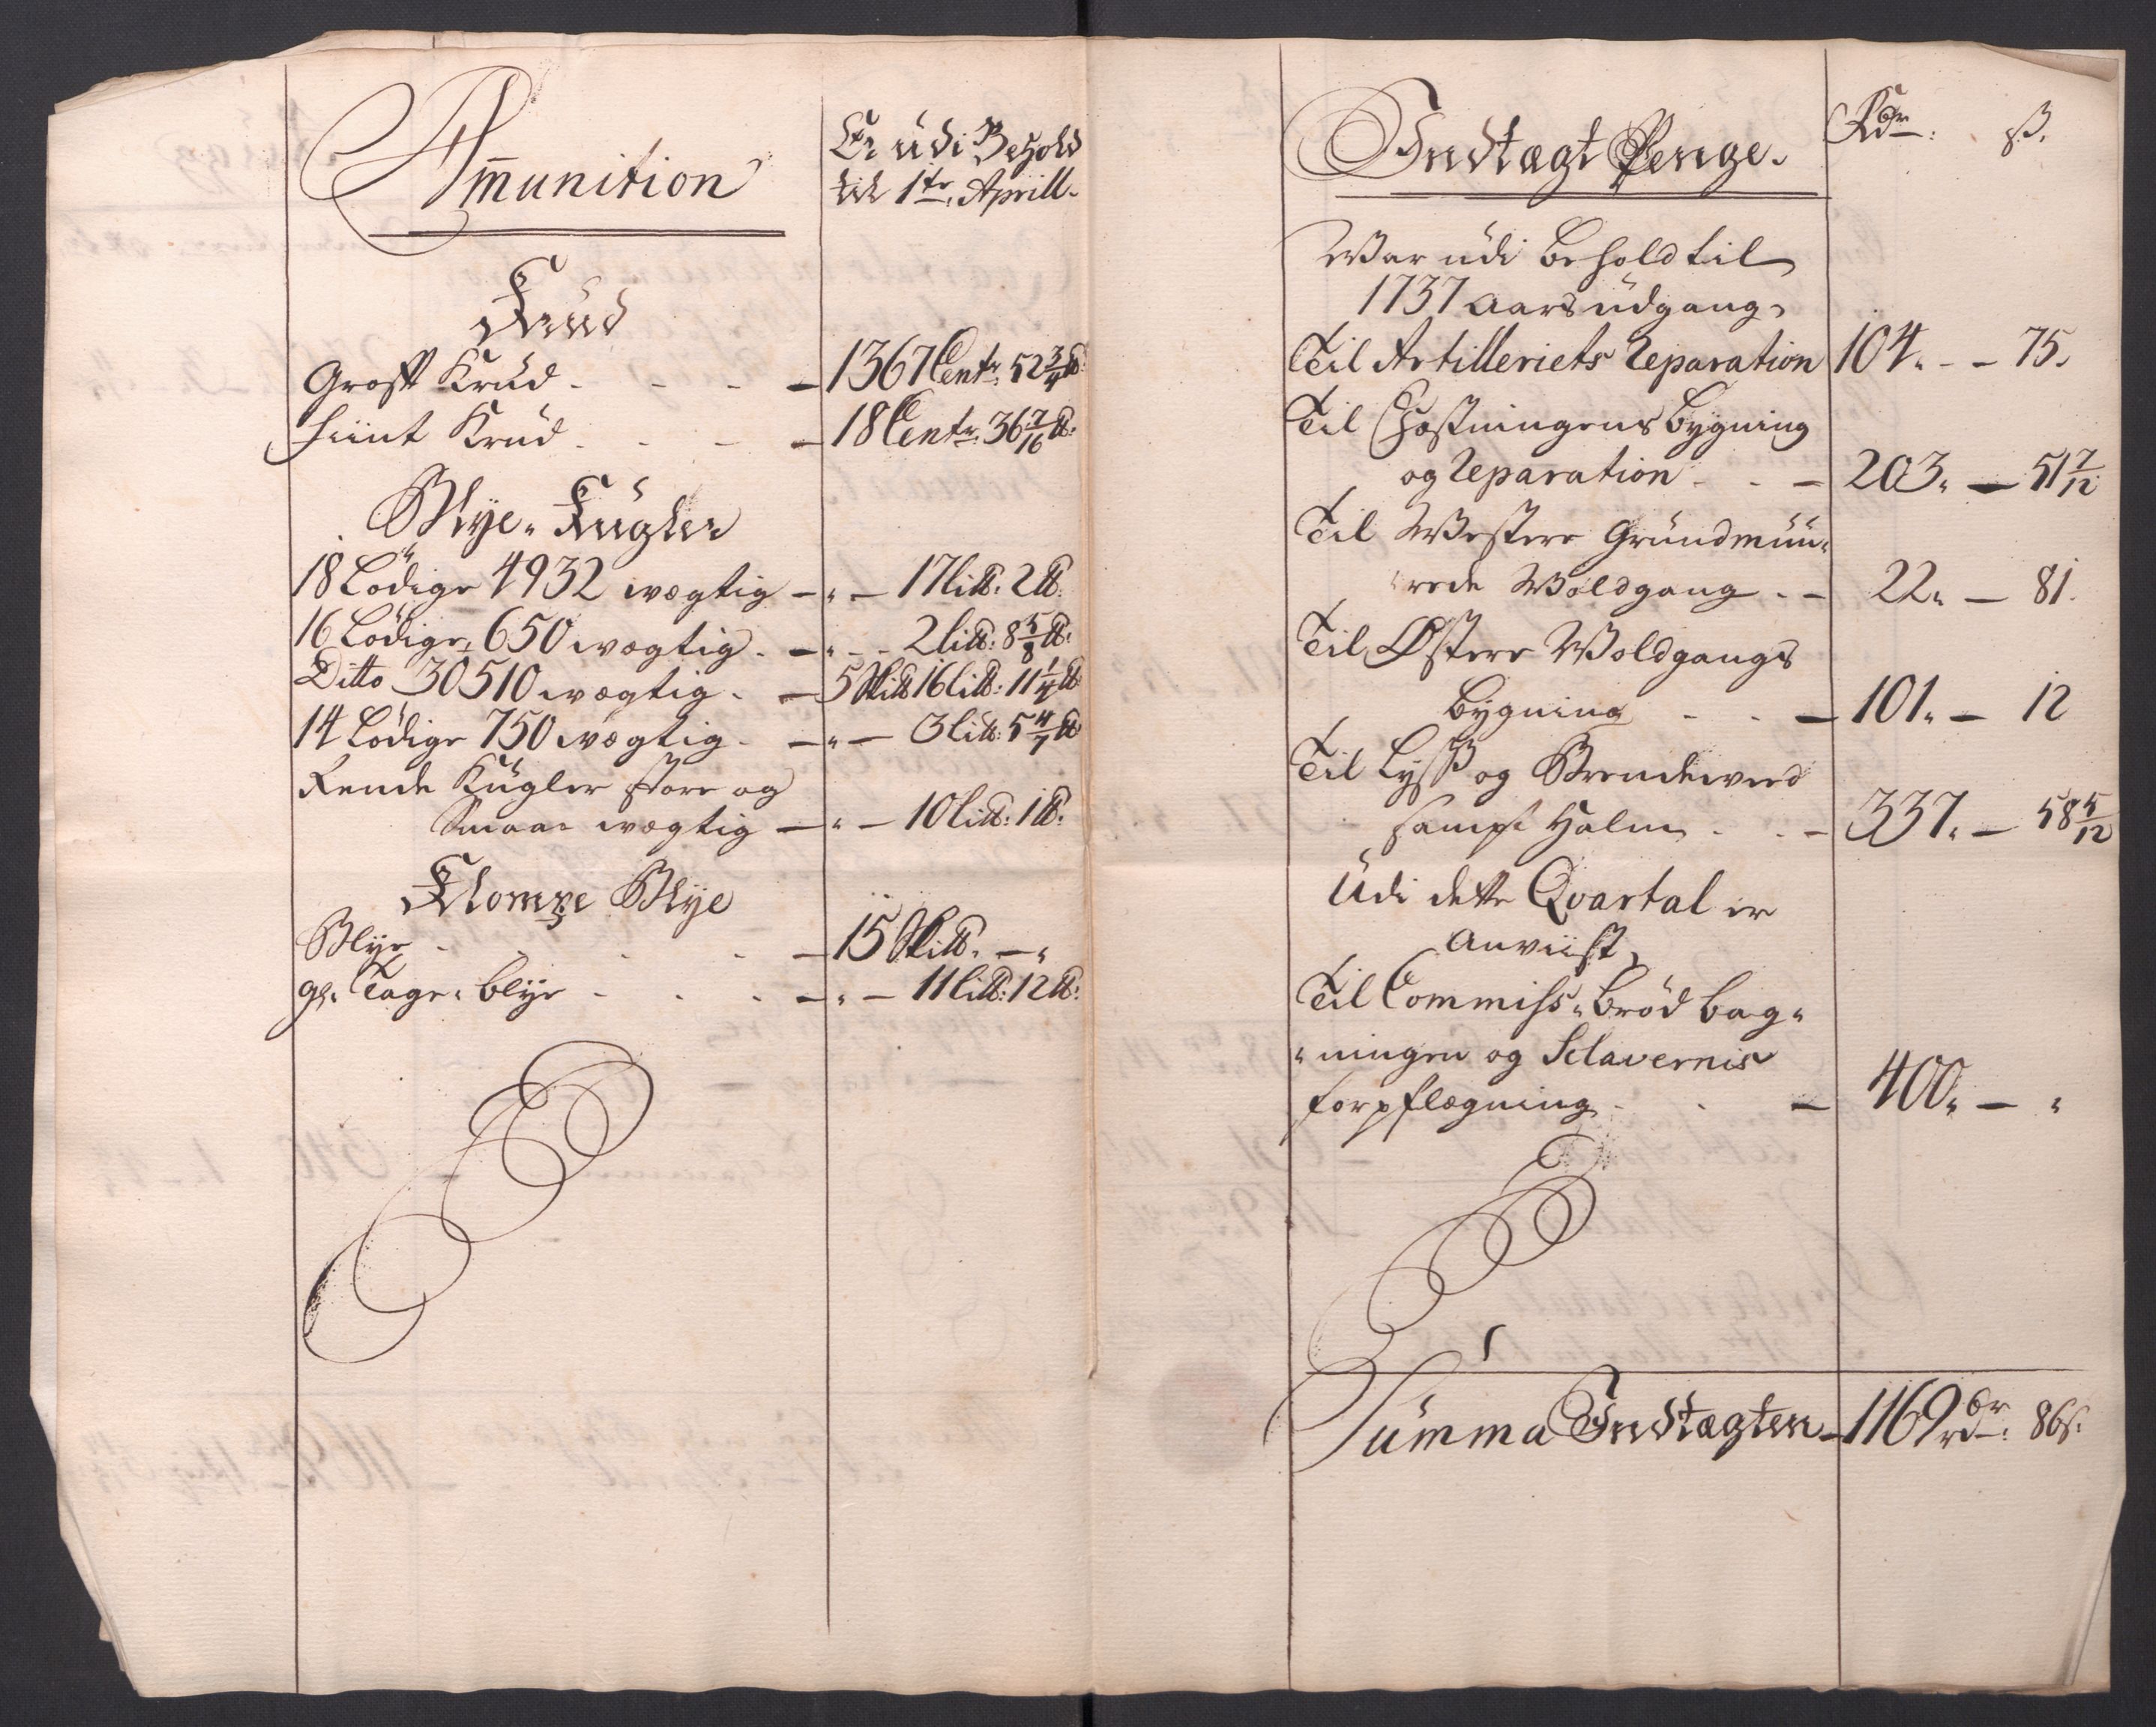 Ammunition
Er udi Behold
til 1te Aprill.
Krud
Groft Krud - - - 1367 Centr. 52 3/4 ℔:
fiint Krud - - - 18 Centr. 36 7/16 ℔:
Blye-Kugler
18 Lødige 4932 vægtig - " - 17 Li℔: 2 ℔:
16 Lødige 650 vægtig - " - 2 Li℔: 8 5/8 ℔:
Ditto 30510 vægtig - 5 Ski℔ 16 Li℔: 11 1/4 ℔
14 Lødige 750 vægtig - " - 3 Li℔: 5 4/7 ℔
Rende Kugler store og
Smaae vægtig - " - 10 Li℔: 1 ℔:
Klompe Blye
Blye - - - 15 Ski℔. - "
gl. Tage-blye - - - " - 11 Li℔: 12 ℔:
Indtægt Penge.
Rdr: ß.
War udi behold til
1737 Aars udgang,
Til Artilleriets Reparation 104. - - 75.
Til Fæstningens bygning
og Reparation - - 203. - 51 7/12
Til Westere Grundmuu-
rede Woldgang - - 22. - 81.
Til Østere Woldgangs
bygning - - 101. - 12
Til Lyss og Brendeveed
sampt Halm - - 337. - 58 5/12
Udi dette Qvartal er
Anviist,
Til Commiss-brød bag-
ningen og Sclavernis
forpflægning - - 400. - "
Summa Indtægten - 1169 rdr: 86 ß.